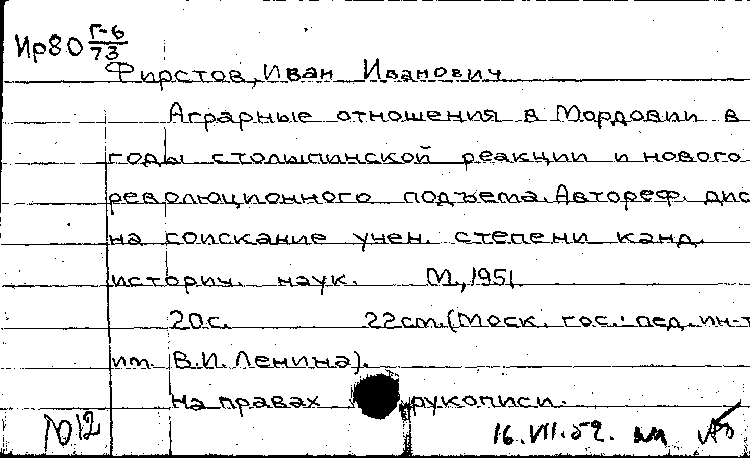 Ир80 Г-6/73
Фирстов, Иван Иванович
Аграрные отношения в Мордовии в
годы столыпинской реакции и нового
революционного подъема. Автореф. дис
на соискание учен. степени канд.
историч. наук. М., 1951.
20с. 22см. (Моск. гос. пед. ин-т
им. В.И. Ленина).
На правах рукописи.
12
16.VII.52.